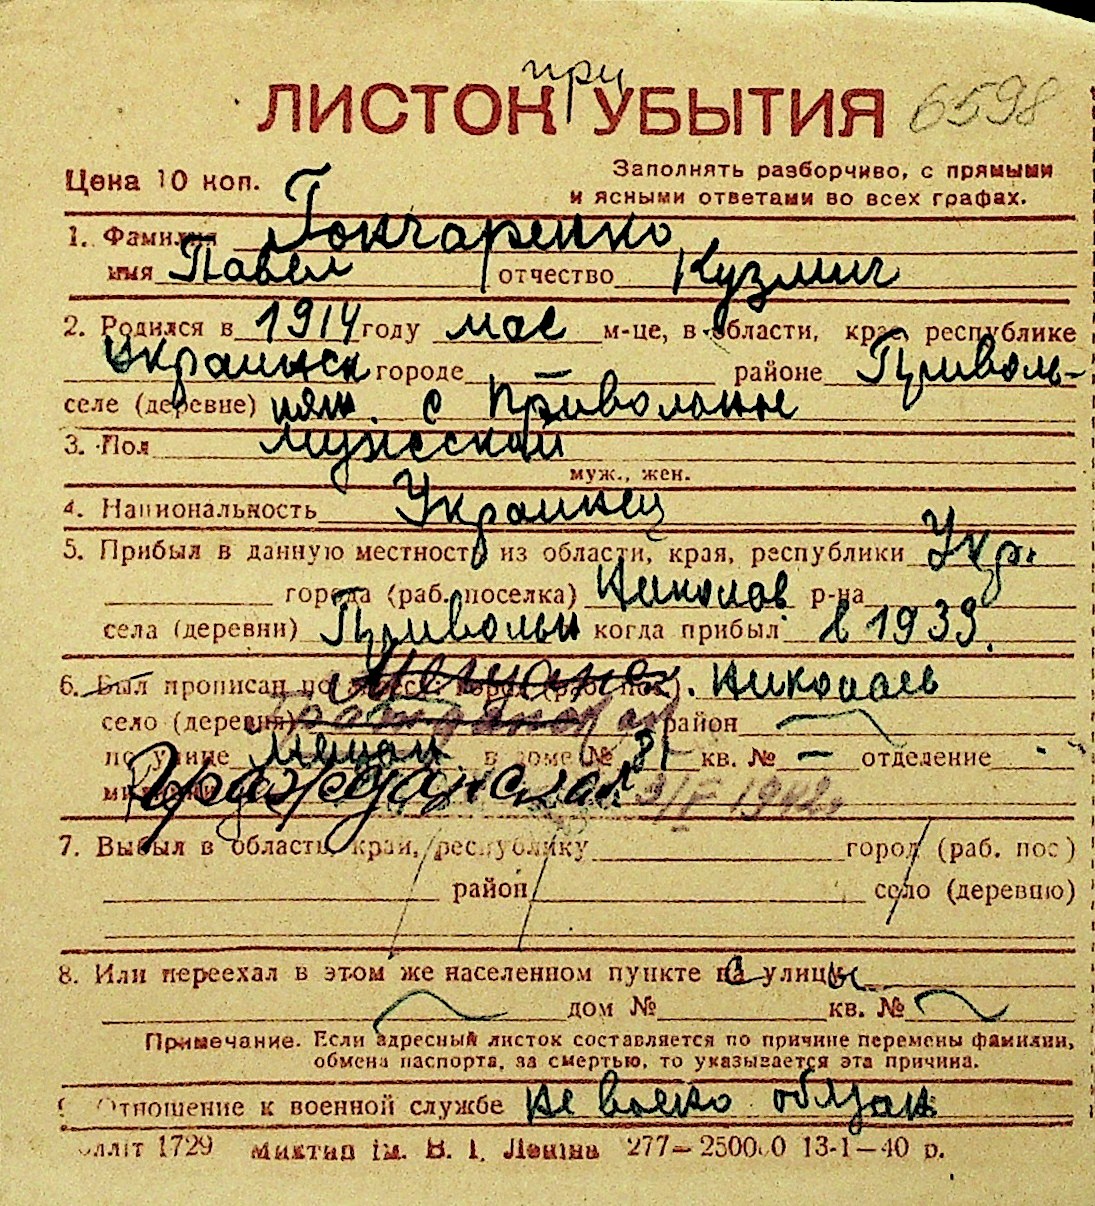 при
ЛИСТОК УБЫТИЯ 6598
Цена 10 коп.
Заполнять разборчиво, с прямыми
и ясными ответами во всех графах.
1. Фамилия Гончаренко
имя Павел отчество Кузмич
2. Родился в 1914 году мае м-це, в области, крае, республике
Украинск городе — районе Приволь-
селе (деревне) нян. с Привольные
3. Пол мужеской
муж., жен.
4. Национальность Украинец
5. Прибыл в данную местность из области, края, республики Укр.
города (раб. поселка) Николав р-на
села (деревни) Привольн когда прибыл в 1939.
6. Был прописан по адресу: город (раб. пос.). Николаев
село (деревня) район
по улице в доме № 31 кв. № — отделение
милиции Гражданская 1942г
7. Выбыл в область, край, республику город (раб. пос)
район село (деревню)
8. Или переехал в этом же населенном пункте с улицы
дом № кв. №
Примечание. Если адресный листок составляется по причине перемены фамилии,
обмена паспорта, за смертью, то указывается эта причина.
Отношение к военной службе не воено облзан
1729 ім. В. І. Леніна 277— 13-1—40 р.